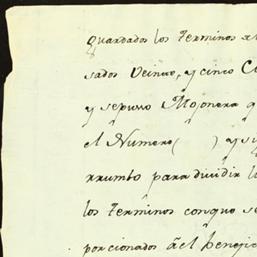 guardados los terminos
sados Veinte, y cinco
y sepuso Mojonera
el Numero ( ) y
rrumbo para dividir
los terminos conque se
porcionados ã el